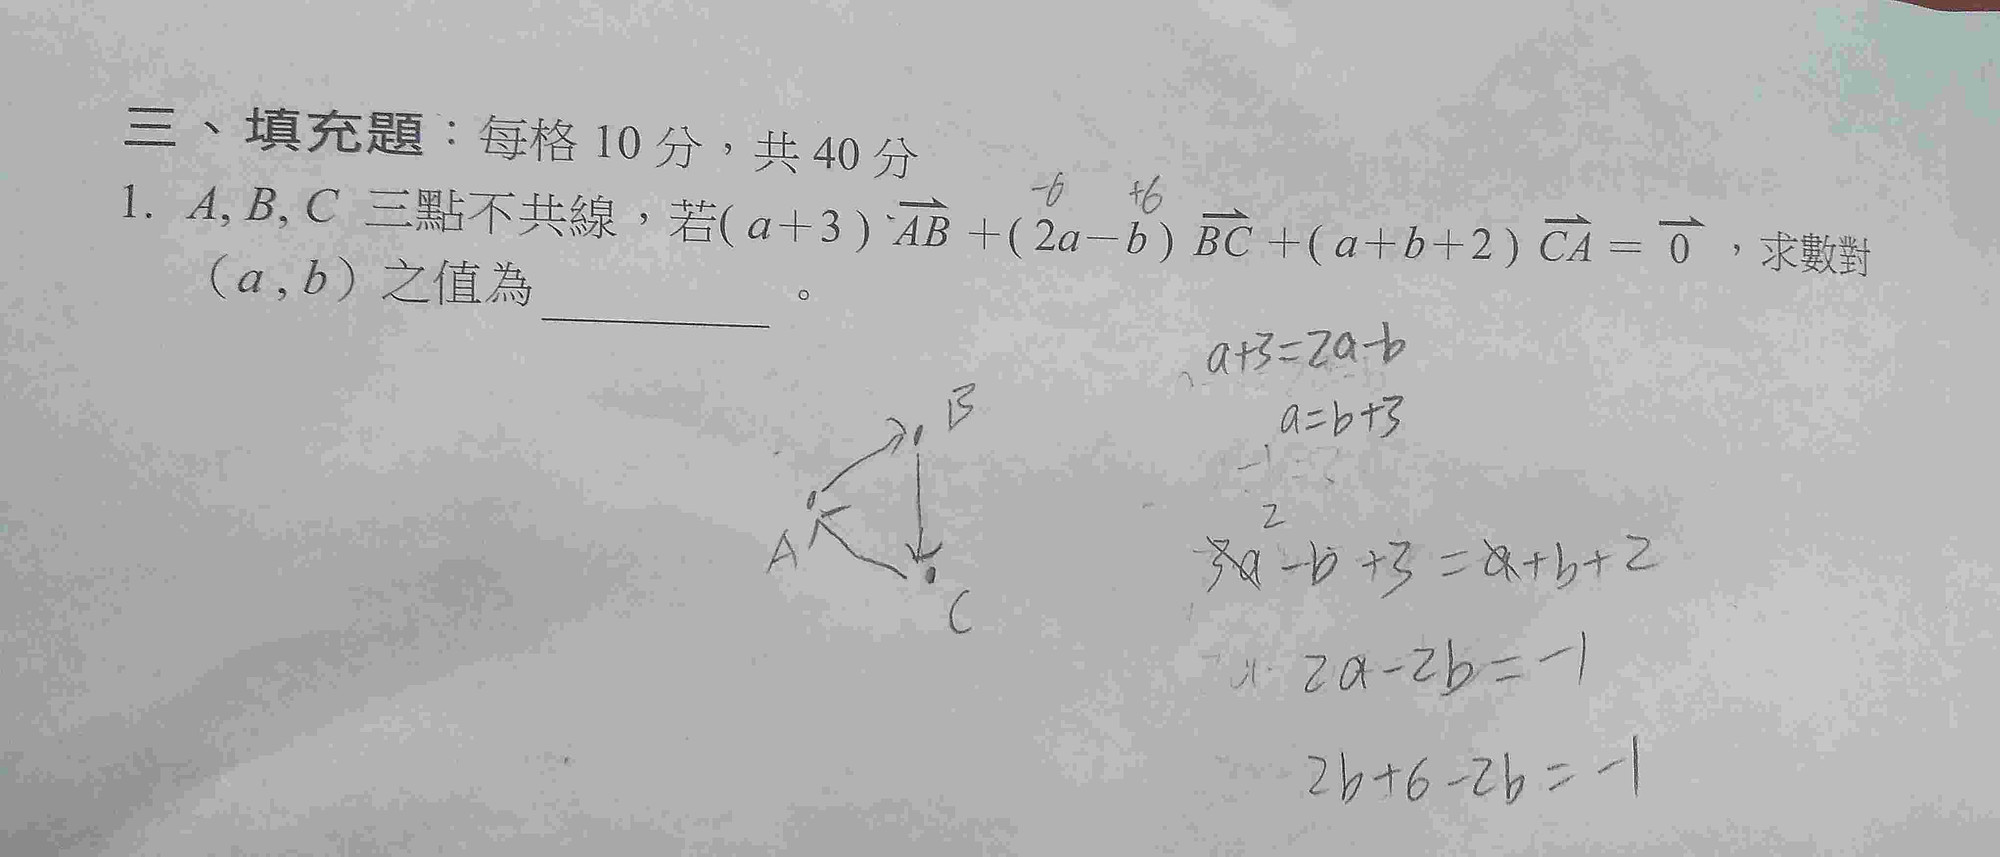 三、填充題：每格 10 分，共 40 分
1. A, B, C 三點不共線，若( a+3 ) AB +( 2a−b ) BC +( a+b+2 ) CA = 0 ，求數對
( a , b ) 之值為 ________ 。
-6 +6
a+3=2a-b
a=b+3
2
3a-b+3=a+b+2
2a-2b=-1
2b+6-2b=-1
B
A
C